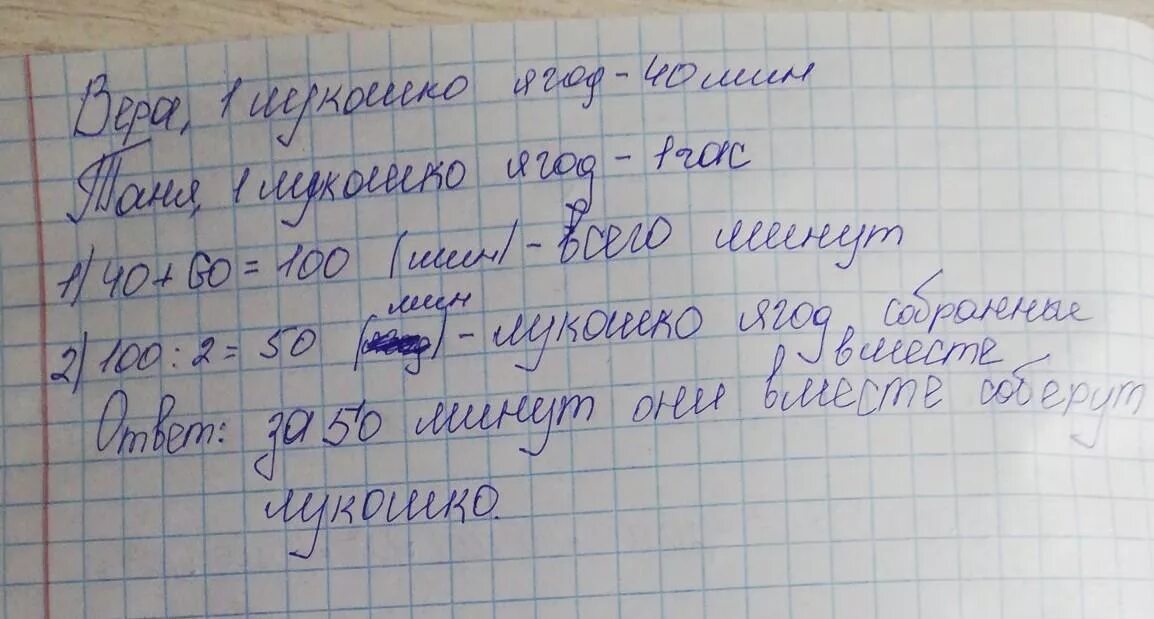 Вера, 1 лукошко ягод - 40 мин
Таня, 1 лукошко ягод - 1 час
1) 40 + 60 = 100 (мин) - всего минут
2) 100 : 2 = 50 (мин) - лукошко ягод, собранные
вместе
Ответ: за 50 минут они вместе соберут
лукошко.